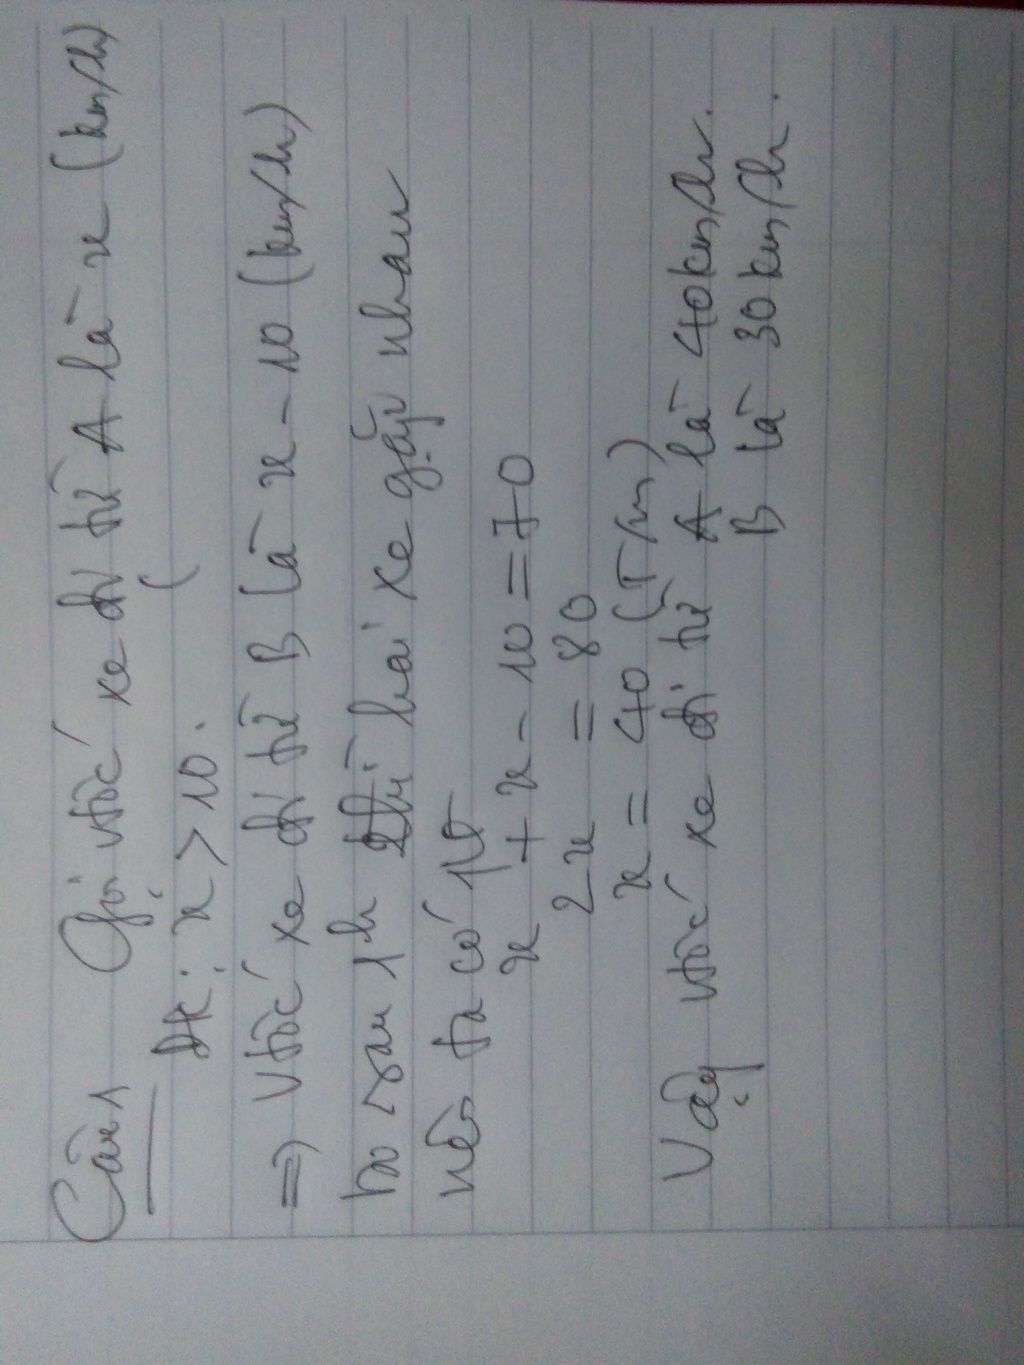 Câu 1 Gọi vtốc xe đi từ A là x (km/h)
ĐK: x > 10.
=> vtốc xe đi từ B là x - 10 (km/h)
Do sau 1h thì hai xe gặp nhau
nên ta có pt
x + x - 10 = 70
2x = 80
x = 40 (T/m)
Vậy vtốc xe đi từ A là 40km/h.
B là 30km/h.